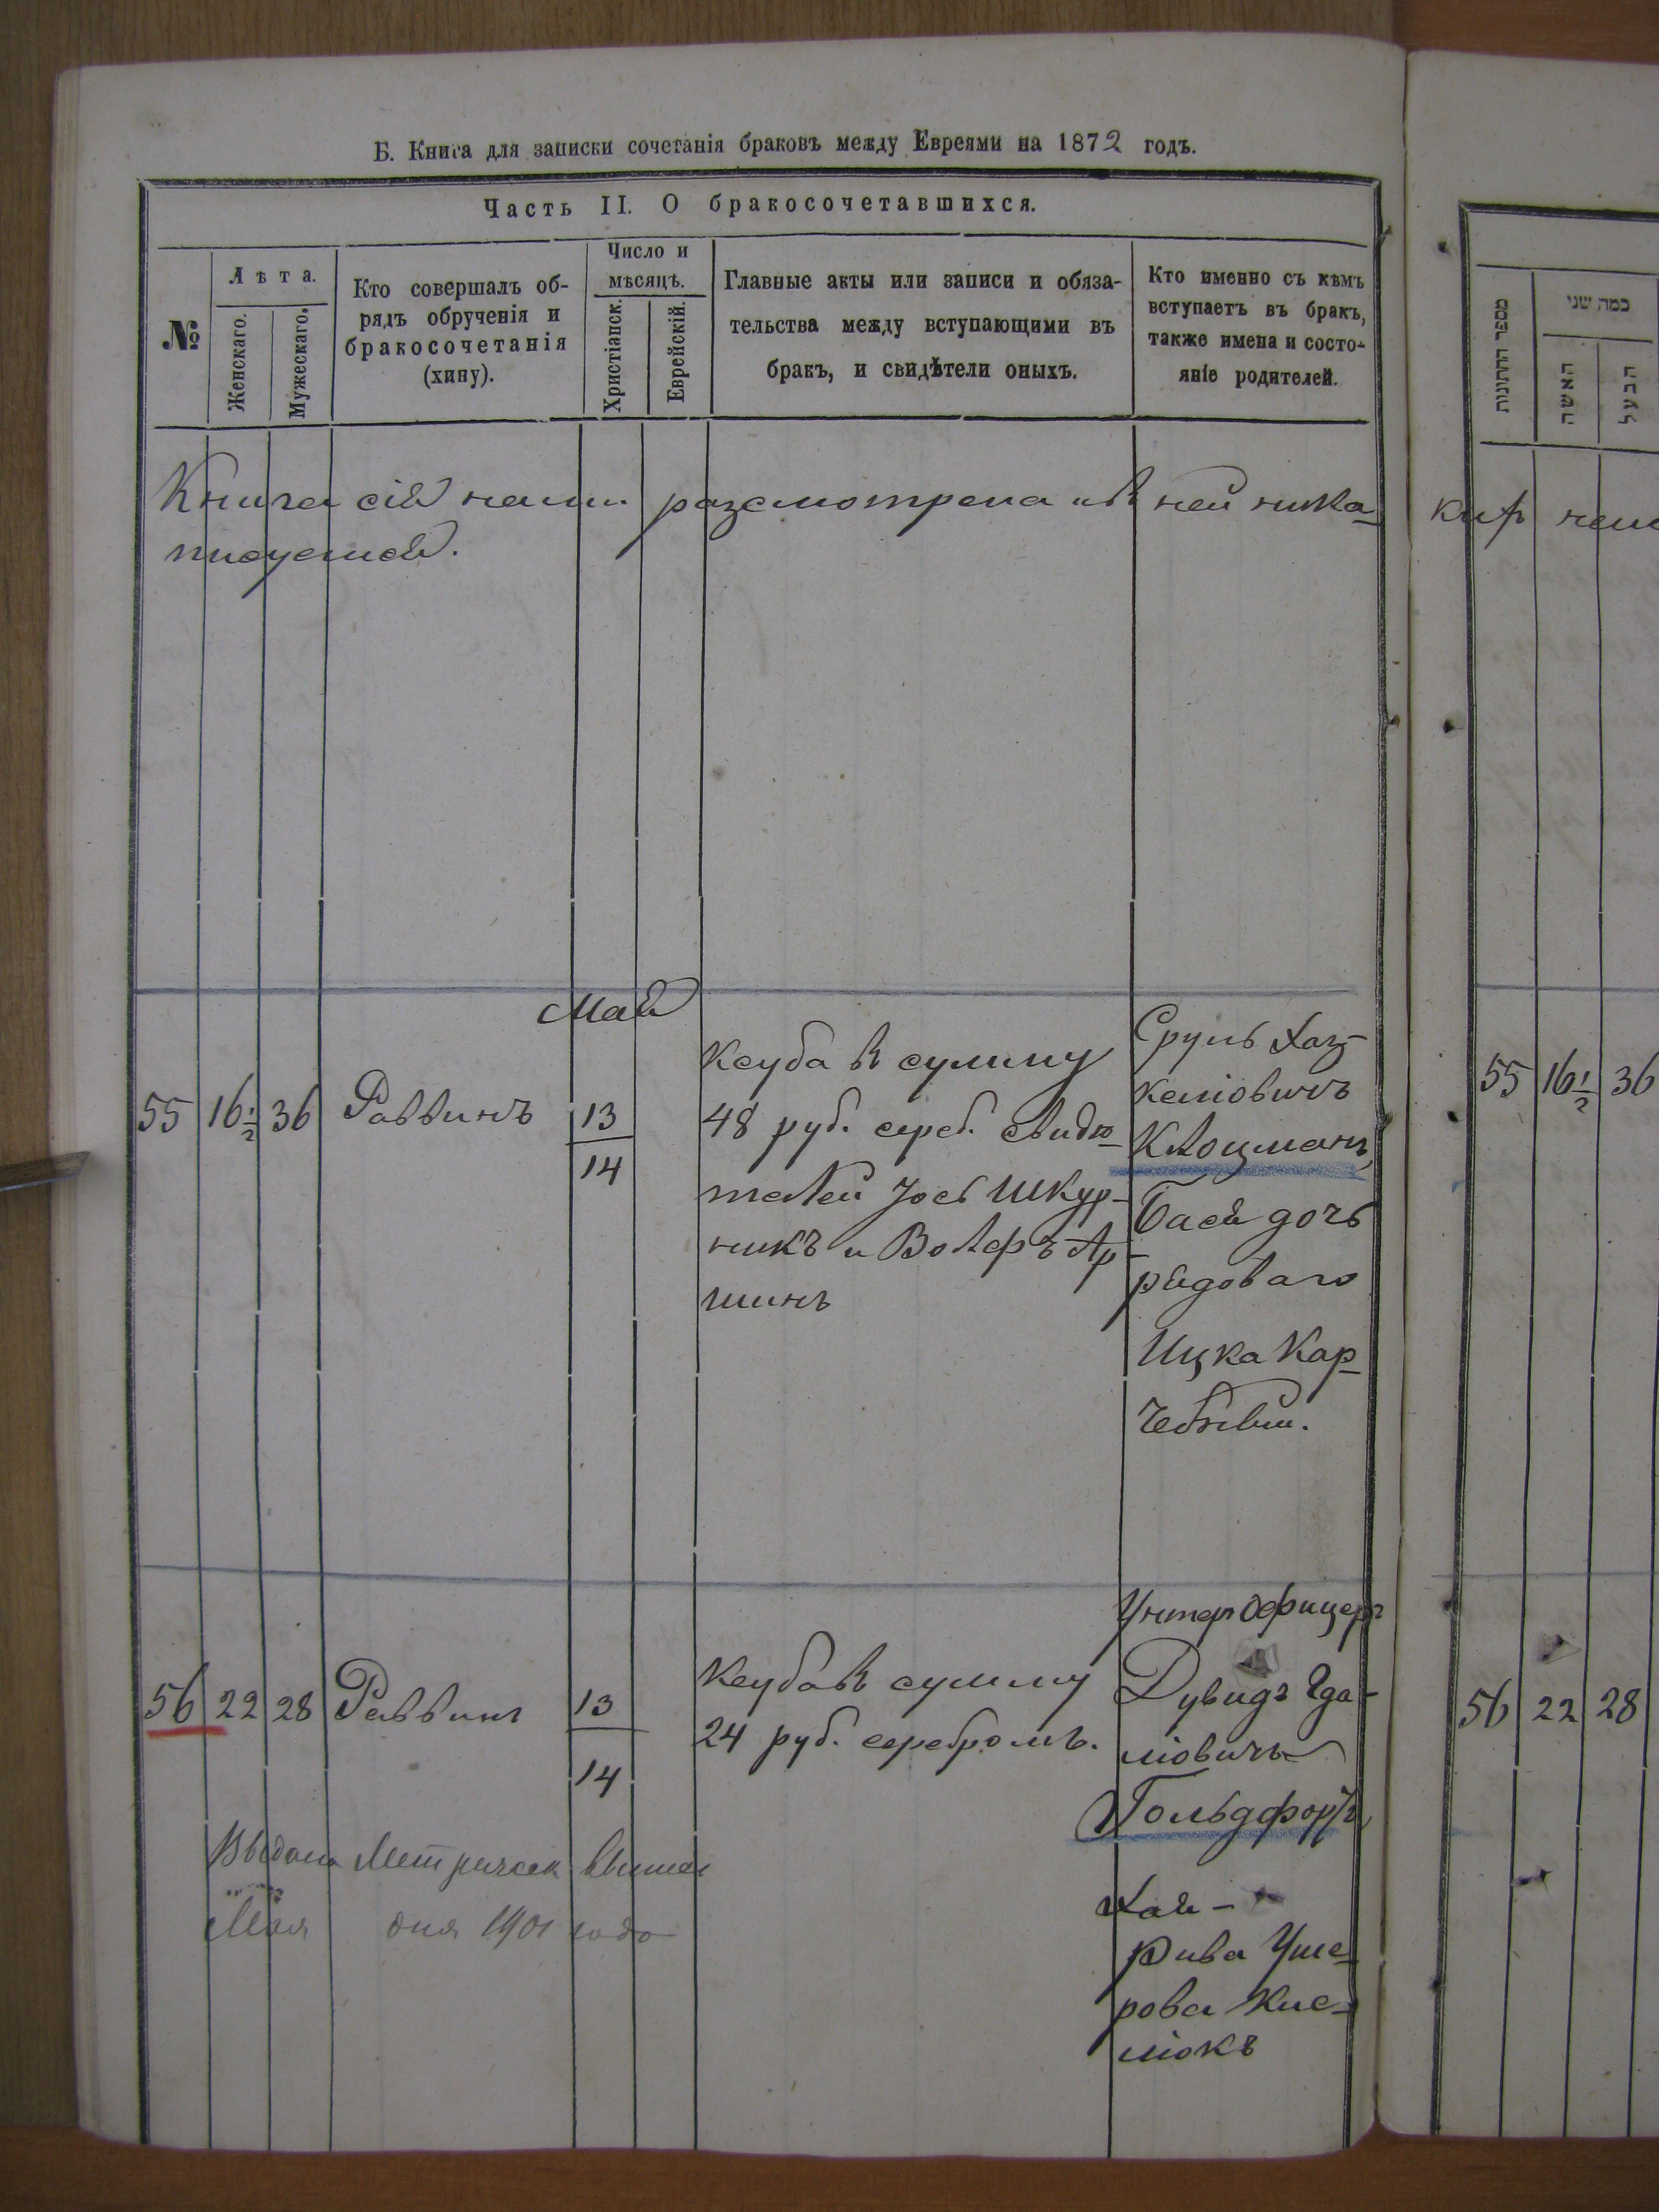 Б. Книга для записки сочетанія браковъ между Евреями на 1872 годъ.
Часть II. О бракосочетавшихся.
№
Лѣта.
Женскаго.
Мужескаго.
Кто совершалъ об-
рядъ обрученія и
бракосочетанія
(хипу).
Число и
мѣсяцъ.
Христіанск.
Еврейскій.
Главные акты или записи и обяза-
тельства между вступающими въ
бракъ, и свидѣтели оныхъ.
Кто именно съ кѣмъ
вступаетъ въ бракъ,
также имена и состо-
яніе родителей.
Книга сія разсмотрена и в ней ника-
Май
55 16 1/2 36 Раввинъ 13
14
Ксуба в сумму
48 руб. сереб. свидѣ-
телей Іось Шкур-
никъ и Волфъ Ар-
шинъ
Сруль Хаз-
келіовичъ
Клоцманъ,
Бася дочь
рядоваго
Ицка Кар-
56 22 28 Раввинъ 13
14
Ксуба в сумму
24 руб. серебромъ.
Унтер Офицеръ
Дувидъ Гда-
ліовичъ
Гольдфарбъ,
Хая -
Рива Уше-
рова Кис-
ліокъ
Выдана Метрическ
Мая дня 1901 года
מספר החתונות
כמה שני
האשה
הבעל
55 16 1/2 36
56 22 28